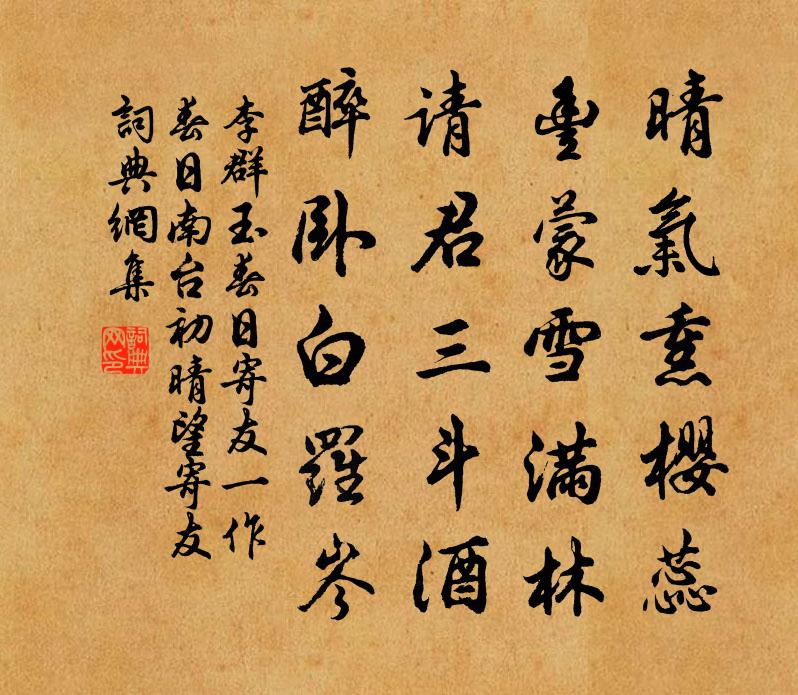 晴氣熏櫻蕊
豐蒙雪滿林
请君三斗酒
醉卧白羅岑
李群玉春日寄友一作
春日南台初晴望寄友
詞典網集
詞典网印